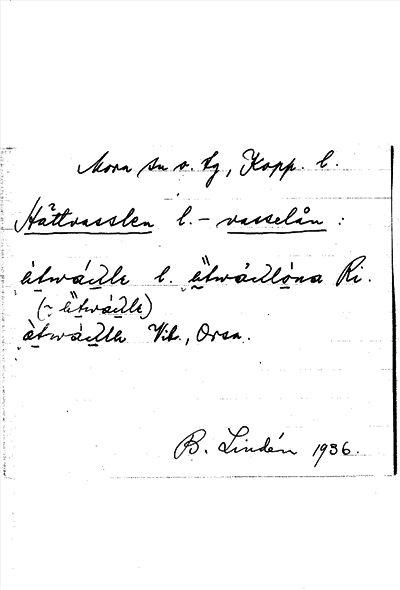 Mora sn o. tg, Kopp. l.
Hättvasslen l. - vasselån :
ätwàdle l. ätwàdlóna Ri.
(~ ätwàdle)
ätwàdle Vik., Orsa.
B. Lindén 1936.